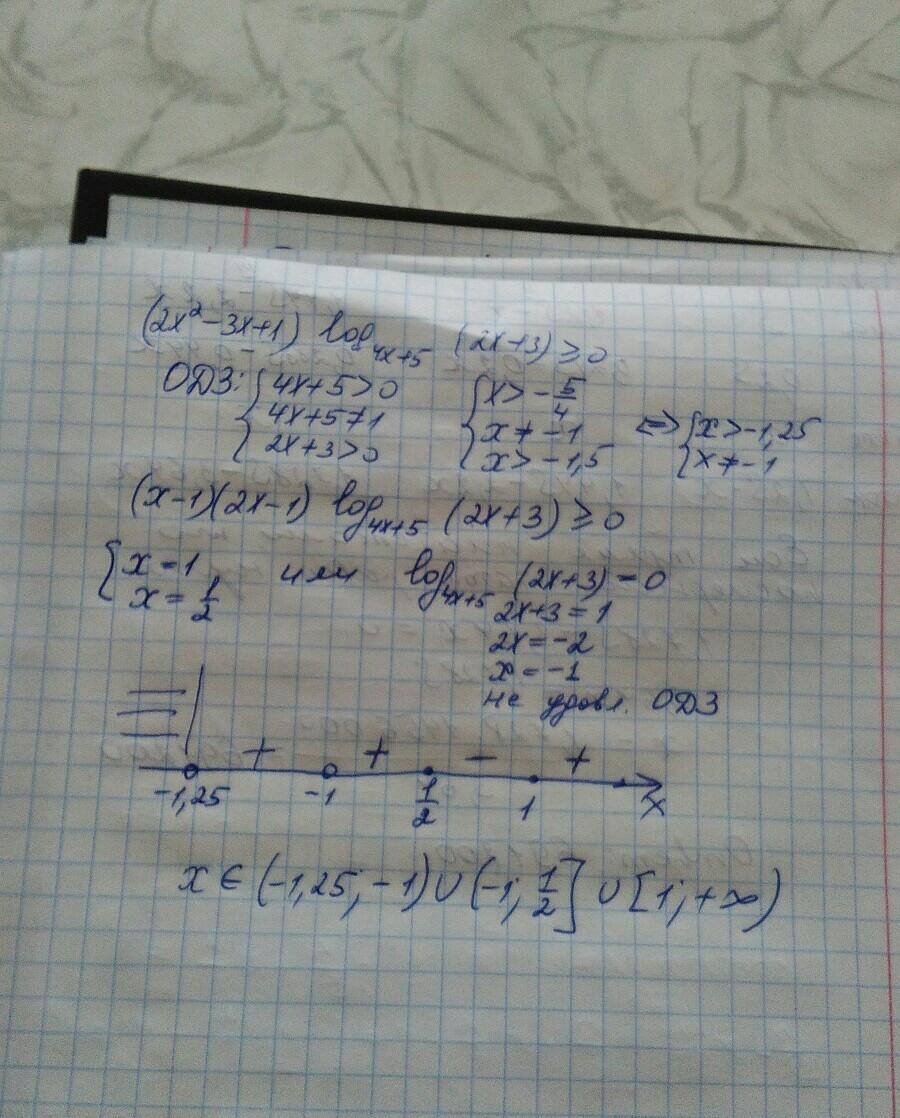 (2x²-3x+1) log₄ₓ₊₅ (2x+3) ≥ 0
ОДЗ: { 4x+5>0 { x > -5/4
4x+5≠1 x ≠ -1 ⇔ { x > -1,25
2x+3>0 x > -1,5 x ≠ -1
(x-1)(2x-1) log₄ₓ₊₅ (2x+3) ≥ 0
{ x = 1 или log₄ₓ₊₅ (2x+3) = 0
x = 1/2 2x+3 = 1
2x = -2
x = -1
не удовл. ОДЗ
+ + - +
-1,25 -1 1/2 1 x
x ∈ (-1,25; -1) ∪ (-1; 1/2] ∪ [1; +∞)